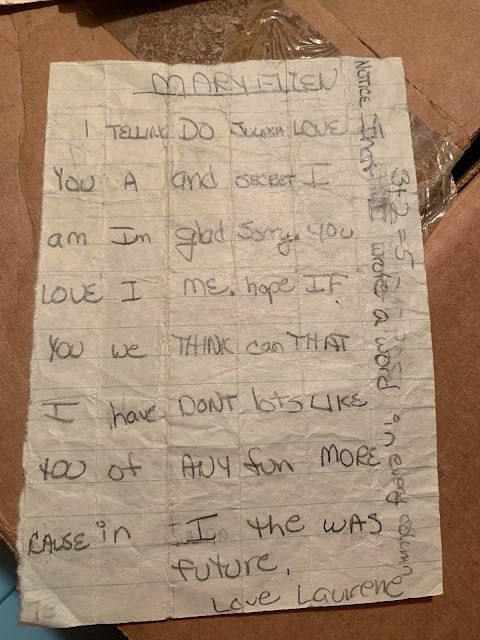 MARY ELLEN
I TELLING DO LOVE
YOU A and SECRET I
am Im glad Sorry. YOU
LOVE I ME. hope IF
YOU we THINK can THAT
I have DONT lots LIKE
YOU of ANY fun MORE
CAUSE in I the WAS
future.
Love Laurene
NOTICE That I wrote a word in every column
3+2=5